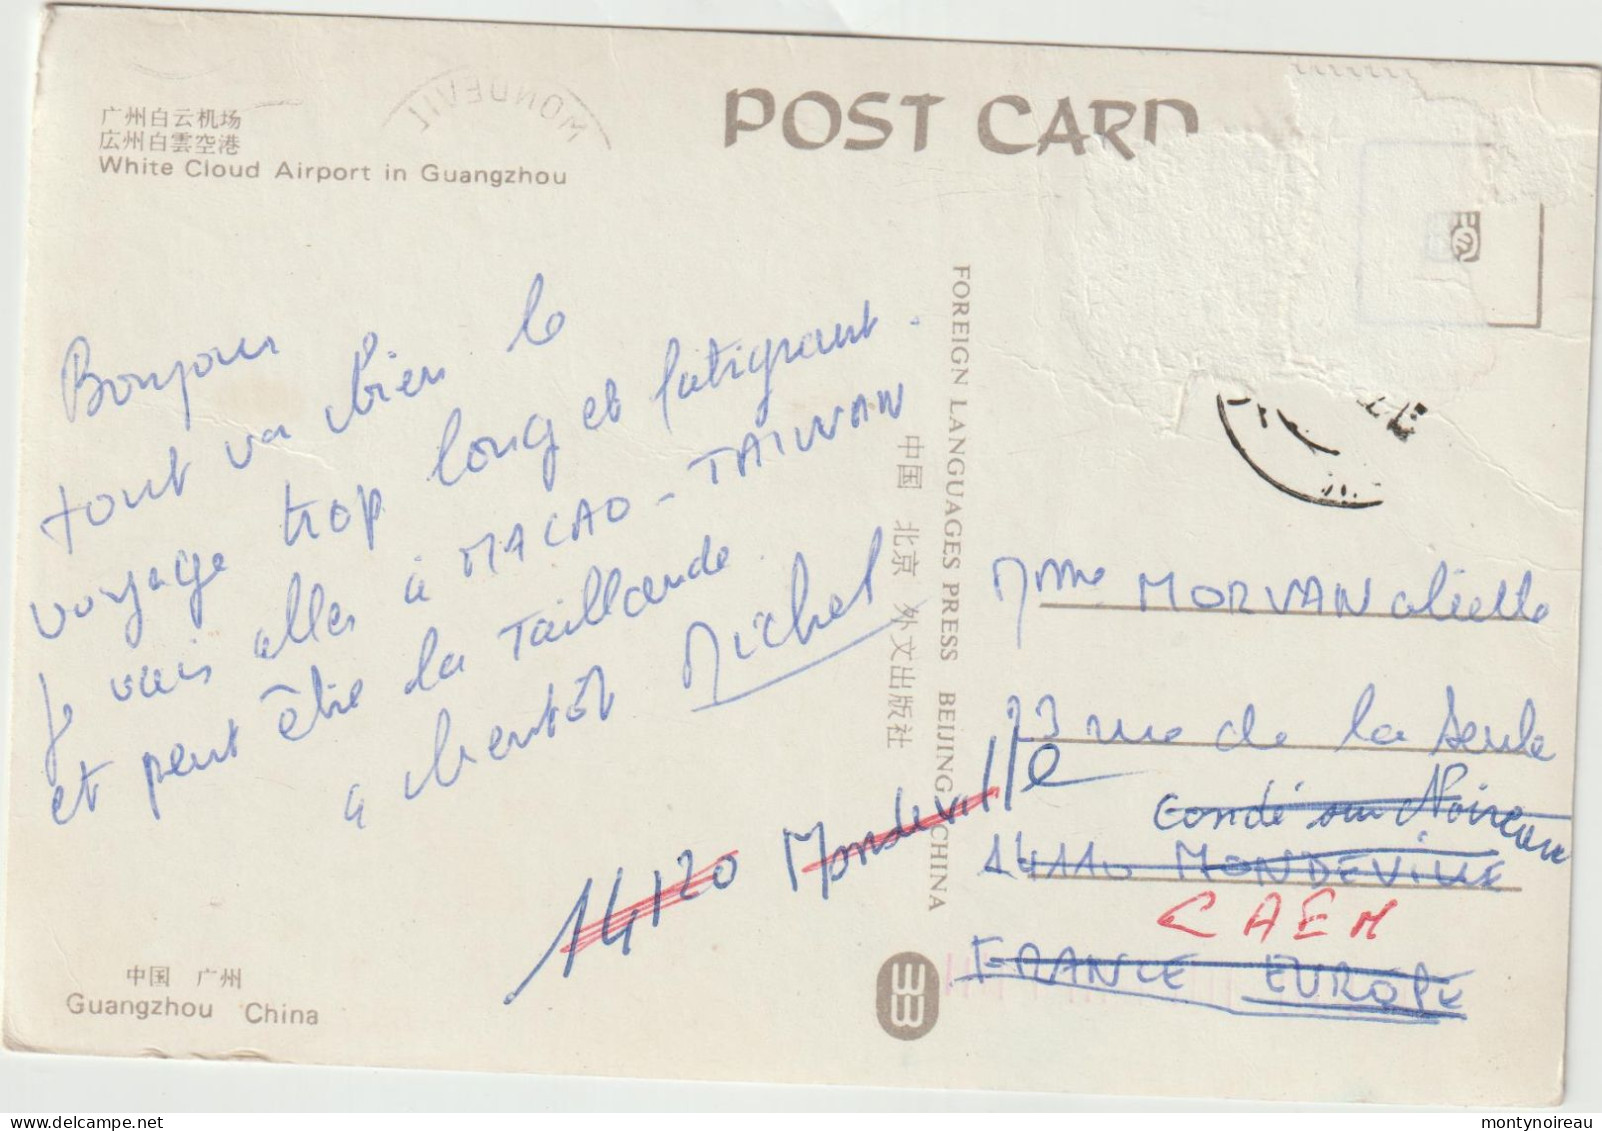 广州白云机场
広州白雲空港
White Cloud Airport in Guangzhou
MONDEVIL
POST CARD
Bonjour
tout va bien le
voyage trop long et fatiguant.
Je vais aller à MACAO - TAIWAN
et peut être la Taillande.
a bientôt Michel
FOREIGN LANGUAGES PRESS BEIJING CHINA
中国 北京 外文出版社
Mme MORVAN aliette
23 rue de la Seule
Condé sur Noireau
14110 MONDEVILLE
CAEN
FRANCE EUROPE
14120 Mondeville
中国 广州
Guangzhou China
montynoireau